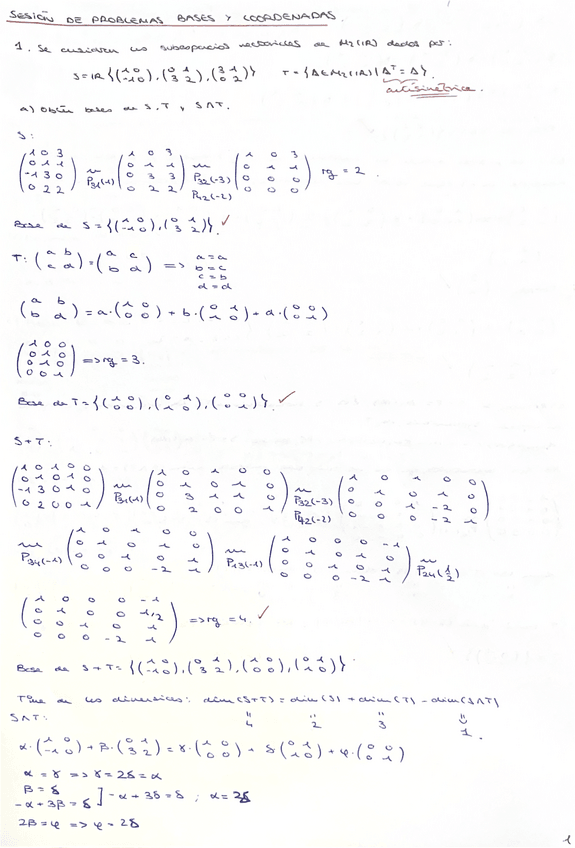 SESIÓN DE PROBLEMAS BASES Y COORDENADAS.
1. Se consideran los subespacios vectoriales de M₂(IR) dados por:
S = IR {(1 0 / -1 0), (0 1 / 3 2), (3 1 / 0 2)} T = {A ∈ M₂(IR) | Aᵀ = A}.
antisimétrica.
a) Obtén bases de S, T y S∩T.
S:
(1 0 3 / 0 1 1 / -1 3 0 / 0 2 2) ~ P₃₁(1) (1 0 3 / 0 1 1 / 0 3 3 / 0 2 2) ~ P₃₂(-3) P₄₂(-2) (1 0 3 / 0 1 1 / 0 0 0 / 0 0 0) rg = 2.
Base de S = {(1 0 / -1 0), (0 1 / 3 2)}. ✓
T: (a b / c d) = (a c / b d) => a = a
b = c
c = b
d = d
(a b / b d) = a·(1 0 / 0 0) + b·(0 1 / 1 0) + d·(0 0 / 0 1)
(1 0 0 / 0 1 0 / 0 1 0 / 0 0 1) => rg = 3.
Base de T = {(1 0 / 0 0), (0 1 / 1 0), (0 0 / 0 1)}. ✓
S+T:
(1 0 1 0 0 / 0 1 0 1 0 / -1 3 0 1 0 / 0 2 0 0 1) ~ P₃₁(1) (1 0 1 0 0 / 0 1 0 1 0 / 0 3 1 1 0 / 0 2 0 0 1) ~ P₃₂(-3) P₄₂(-2) (1 0 1 0 0 / 0 1 0 1 0 / 0 0 1 -2 0 / 0 0 0 -2 1)
~ P₃₄(-1) (1 0 1 0 0 / 0 1 0 1 0 / 0 0 1 0 1 / 0 0 0 -2 1) ~ P₁₃(-1) (1 0 0 0 -1 / 0 1 0 1 0 / 0 0 1 0 1 / 0 0 0 -2 1) ~ P₂₄(1/2)
(1 0 0 0 -1 / 0 1 0 0 1/2 / 0 0 1 0 1 / 0 0 0 -2 1) => rg = 4. ✓
Base de S+T = {(1 0 / -1 0), (0 1 / 3 2), (1 0 / 0 0), (0 1 / 1 0)}.
Tma de las dimensiones: dim(S+T) = dim(S) + dim(T) - dim(S∩T)
S∩T: " 4 " 2 " 3 " 1.
α·(1 0 / -1 0) + β·(0 1 / 3 2) = γ·(1 0 / 0 0) + δ(0 1 / 1 0) + φ·(0 0 / 0 1)
α = γ => γ = 2δ = α
β = δ
-α + 3β = δ ] -α + 3δ = δ ; α = 2δ
2β = φ => φ = 2δ
1